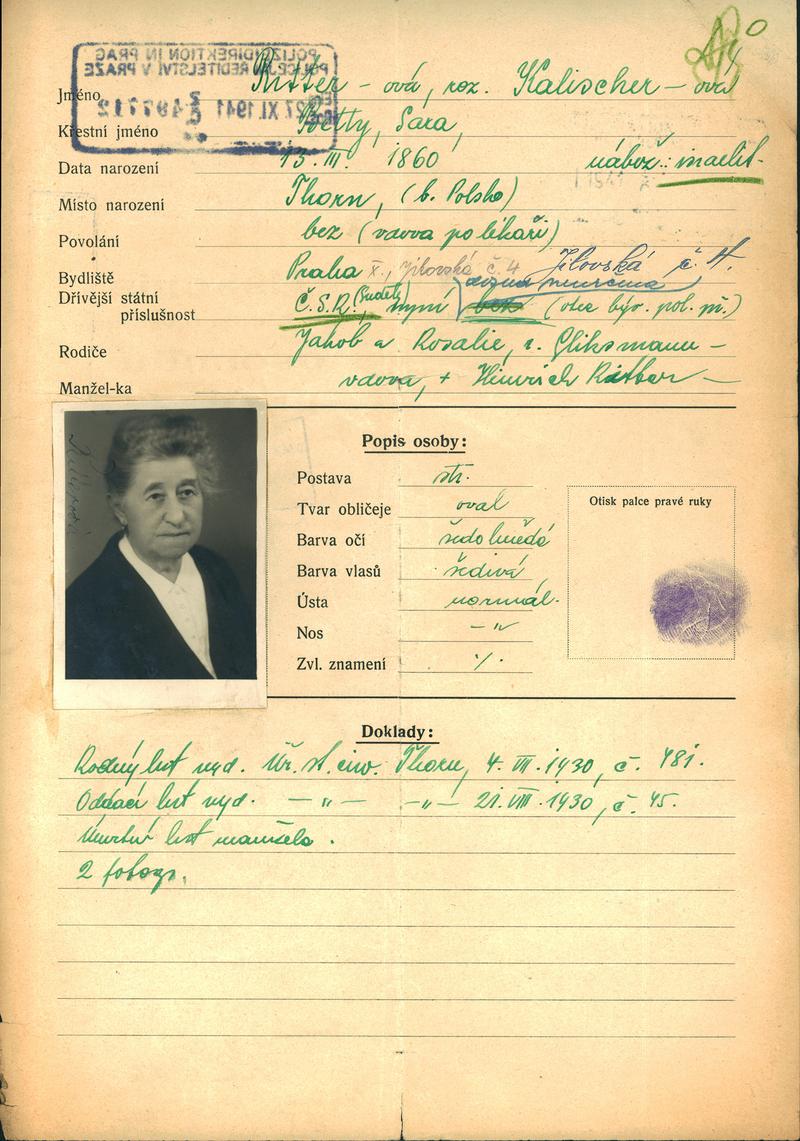 POLIZEIDIREKTION IN PRAG
POLICEJNÍ ŘEDITELSTVÍ V PRAZE
27. XI. 1941
Jméno Ritter - ová, roz. Kalischer - ová
Křestní jméno Betty, Sara,
Data narození 13. III. 1860 nábož.: israelit.
Místo narození Thorn, (b. Polsko)
Povolání bez (vdova po lékaři)
Bydliště Praha X., Jilovská č. 4 Jilovská č. 4.
Dřívější státní
příslušnost Č.S.R. (Sudety) nyní bez (otec býv. pol. př.)
Rodiče Jakob a Rosalie, r. Gliksmann -
Manžel-ka vdova, + Heinrich Ritter -
Popis osoby:
Postava stř.
Tvar obličeje oval
Barva očí šedohnědé
Barva vlasů šedivá
Ústa normál.
Nos - " -
Zvl. znamení ./.
Otisk palce pravé ruky
Doklady:
Rodný list vyd. Úř. st. civ. Thorn, 4. VII. 1930, č. 481.
Oddací list vyd. - " - - " - 21. VIII. 1930, č. 45.
Úmrtní list manžela.
2 fotogr.